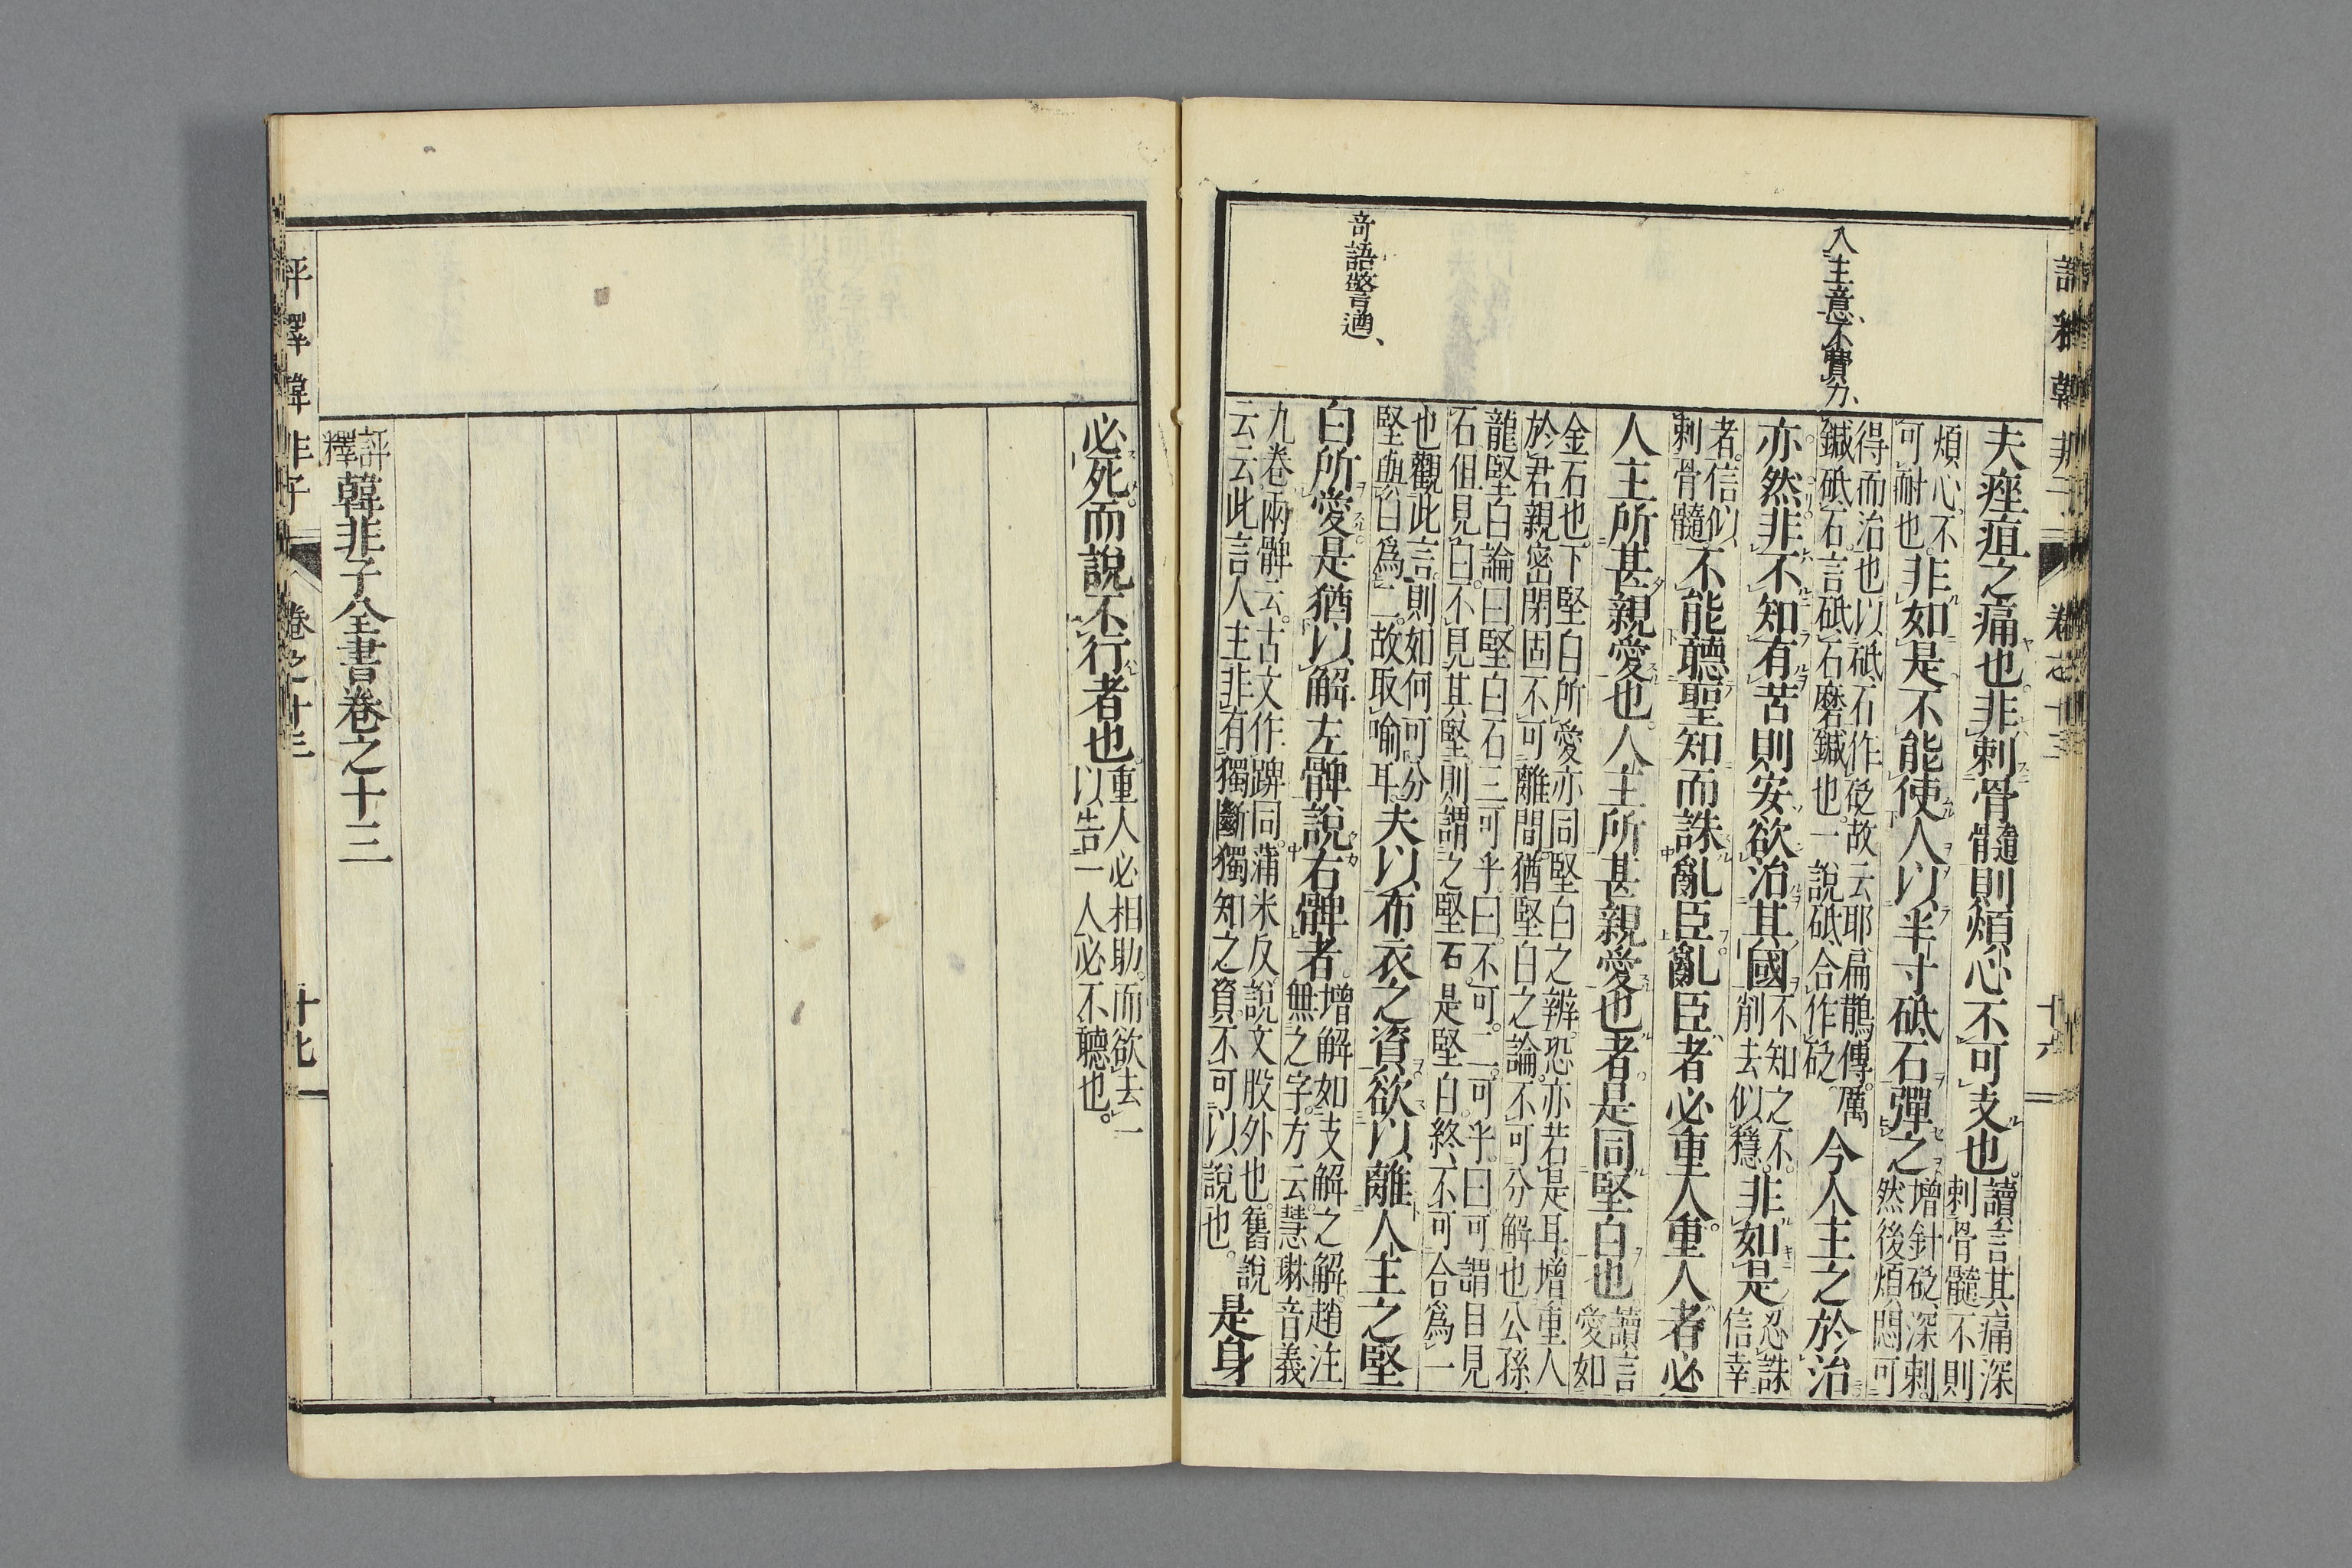 入主意、不費力、
奇語警遒、
夫痤疽之痛也。非刺骨髓則煩心不可支也。讀言其痛深刺骨髓不則
煩心。不可耐也。非如是不能使人以半寸砥石彈之增針砭、深刺。然後煩悶可
得而治也以砥石作砭故云耶扁鵲傳。厲鍼砥石言砥石磨鍼也。一說砥合作砭。今人主之於治
亦然。非不知有苦則安。欲治其國不知之不。削去似穩。非如是忍誅信幸
者。信似刺骨髓不能聽聖知而誅亂臣亂臣者必重人。重人者必
人主所甚親愛也。人主所甚親愛也者是同堅白也讀言愛如
金石也。下堅白所愛亦同堅白之辨。恐亦若是耳。增重人
於君親密閉固不可離間猶堅白之論。不可分解也公孫
龍堅白論曰。堅白石三可乎曰。不可。二。可乎。曰可謂目見
石。但見白。不見其堅則謂之堅石是堅白終、不可合爲一
也觀此言。則如何可分堅與白爲二。故取喻耳。夫以布衣之資欲以離人主之堅
白所愛是猶以解左髀說右髀者。增解如支解之解。趙注無之字。方云。慧琳音義
九卷兩髀云。古文作踔同。蒲米反。說文股外也。舊說云云此言人主非有獨斷獨知之資。不可以說也。是身
評釋韓非子 卷之十三 十六
必死。而說不行者也。重人必相助。而欲去一以告一人必不聽也。
評釋韓非子全書卷之十三
評釋韓非子 卷之十三 十七